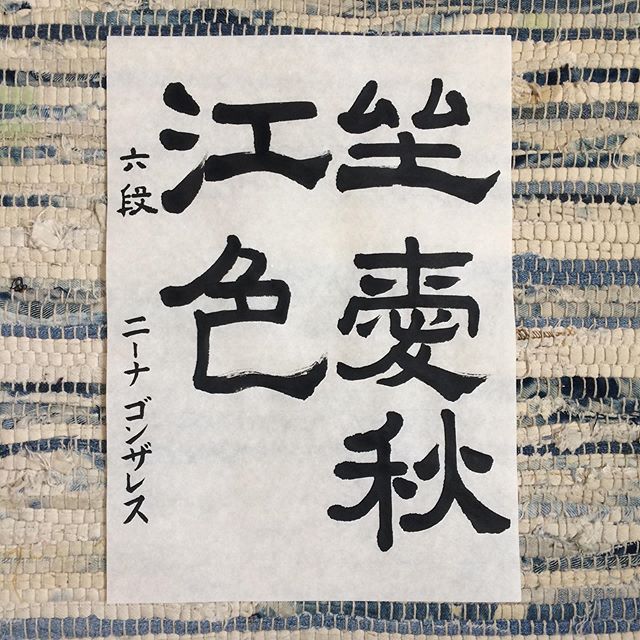 坐愛秋
江色
六段 ニーナ ゴンザレス